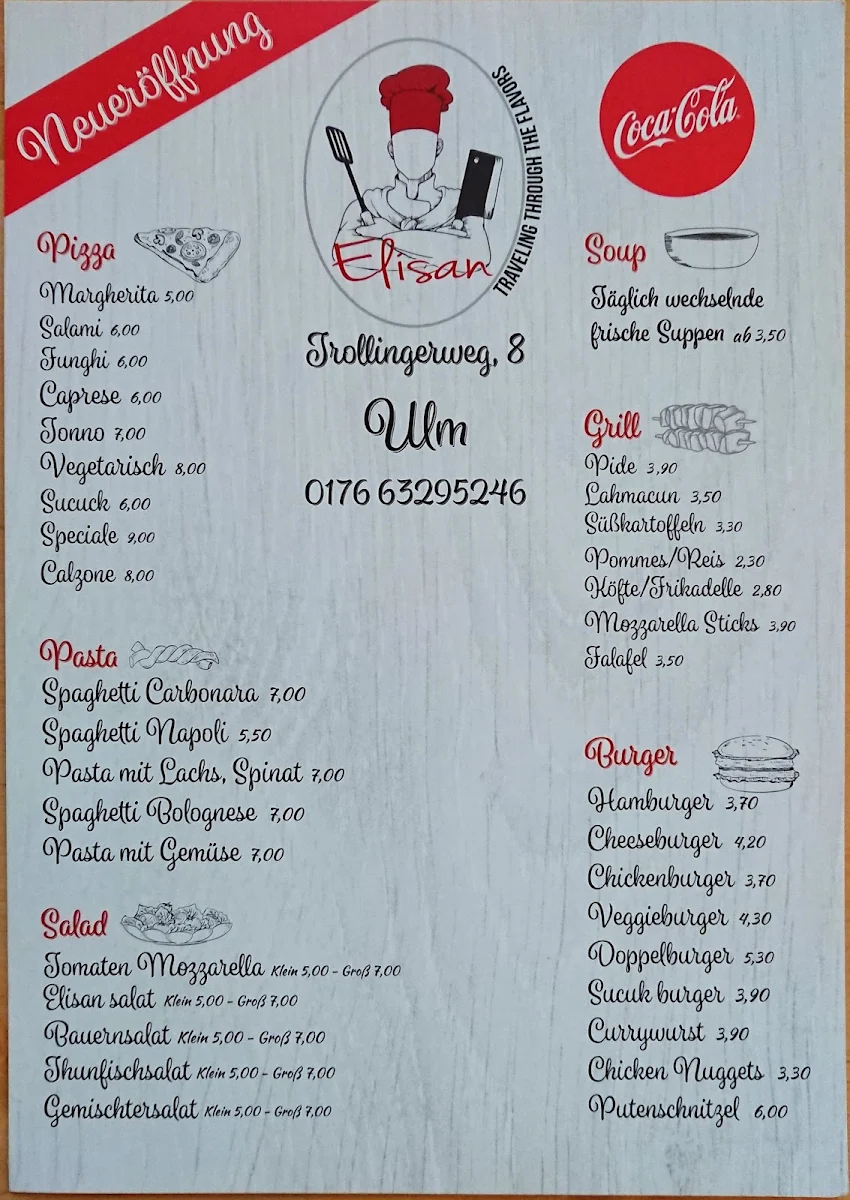 Neueröffnung
Elisan
TRAVELING THROUGH THE FLAVORS
Coca-Cola
Trollingerweg, 8
Ulm
0176 63295246
Pizza
Margherita 5,00
Salami 6,00
Funghi 6,00
Caprese 6,00
Tonno 7,00
Vegetarisch 8,00
Sucuck 6,00
Speciale 9,00
Calzone 8,00
Pasta
Spaghetti Carbonara 7,00
Spaghetti Napoli 5,50
Pasta mit Lachs, Spinat 7,00
Spaghetti Bolognese 7,00
Pasta mit Gemüse 7,00
Salad
Tomaten Mozzarella Klein 5,00 - Groß 7,00
Elisan salat Klein 5,00 - Groß 7,00
Bauernsalat Klein 5,00 - Groß 7,00
Thunfischsalat Klein 5,00 - Groß 7,00
Gemischtersalat Klein 5,00 - Groß 7,00
Soup
Täglich wechselnde
frische Suppen ab 3,50
Grill
Pide 3,90
Lahmacun 3,50
Süßkartoffeln 3,30
Pommes/Reis 2,30
Köfte/Frikadelle 2,80
Mozzarella Sticks 3,90
Falafel 3,50
Burger
Hamburger 3,70
Cheeseburger 4,20
Chickenburger 3,70
Veggieburger 4,30
Doppelburger 5,30
Sucuk burger 3,90
Currywurst 3,90
Chicken Nuggets 3,30
Putenschnitzel 6,00